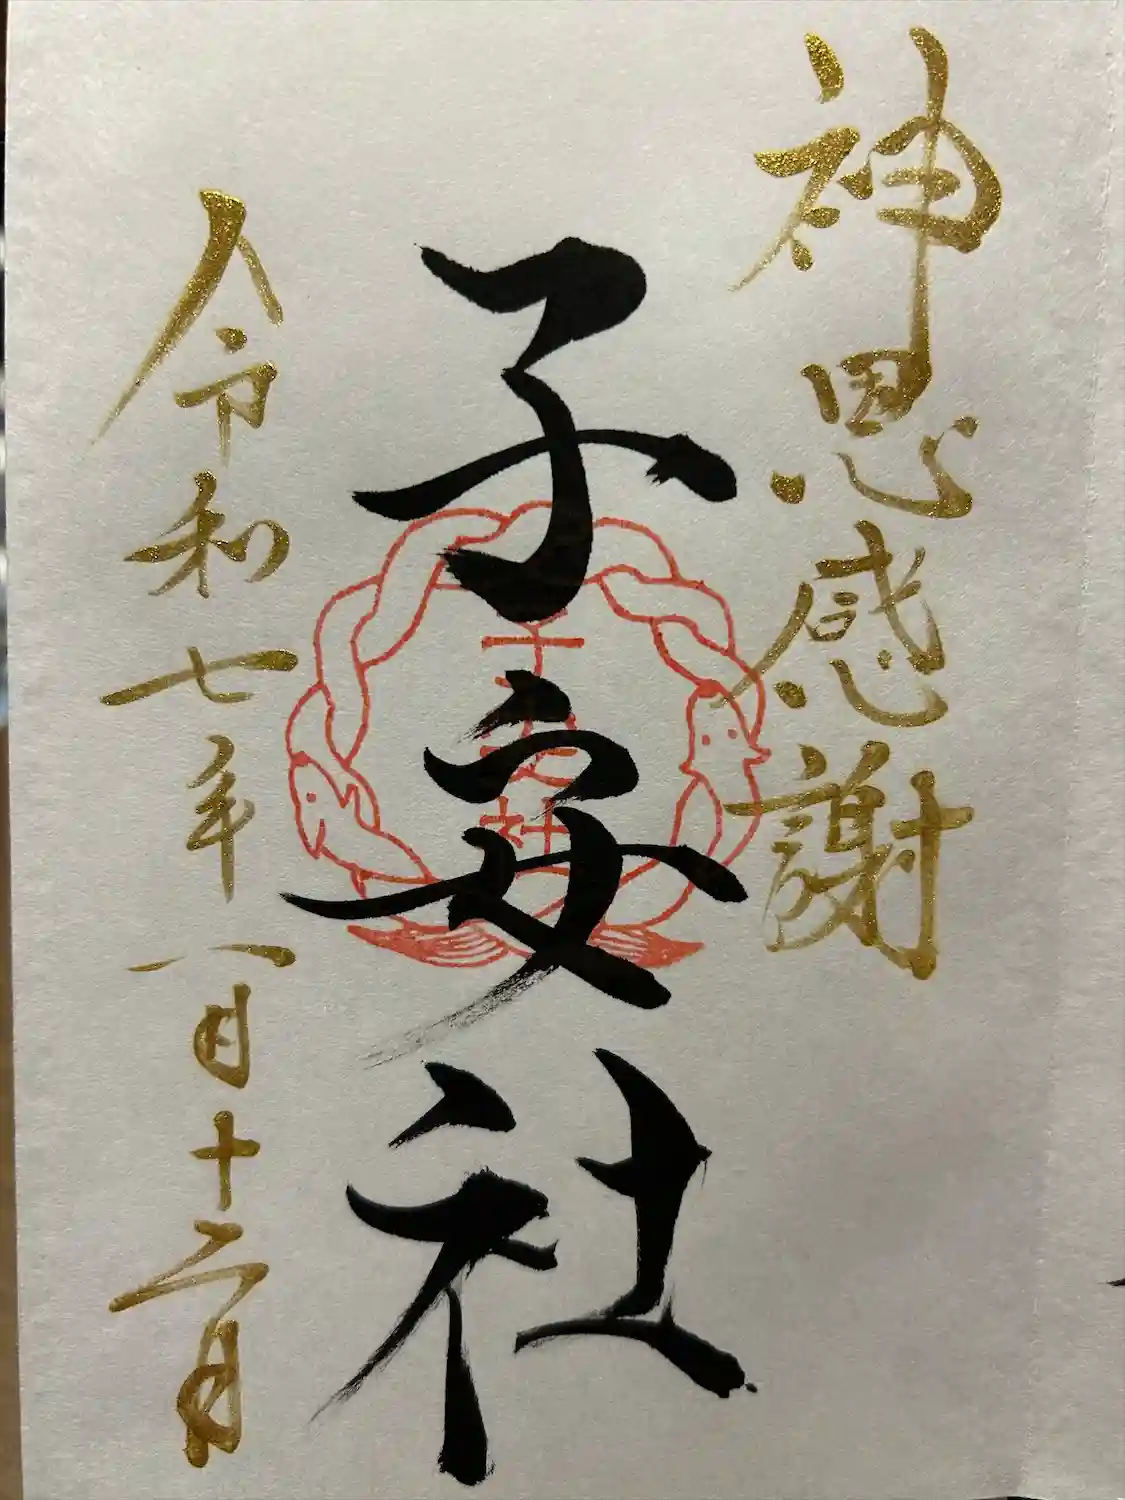 神恩感謝
子安社
子安社
令和七年八月十二日